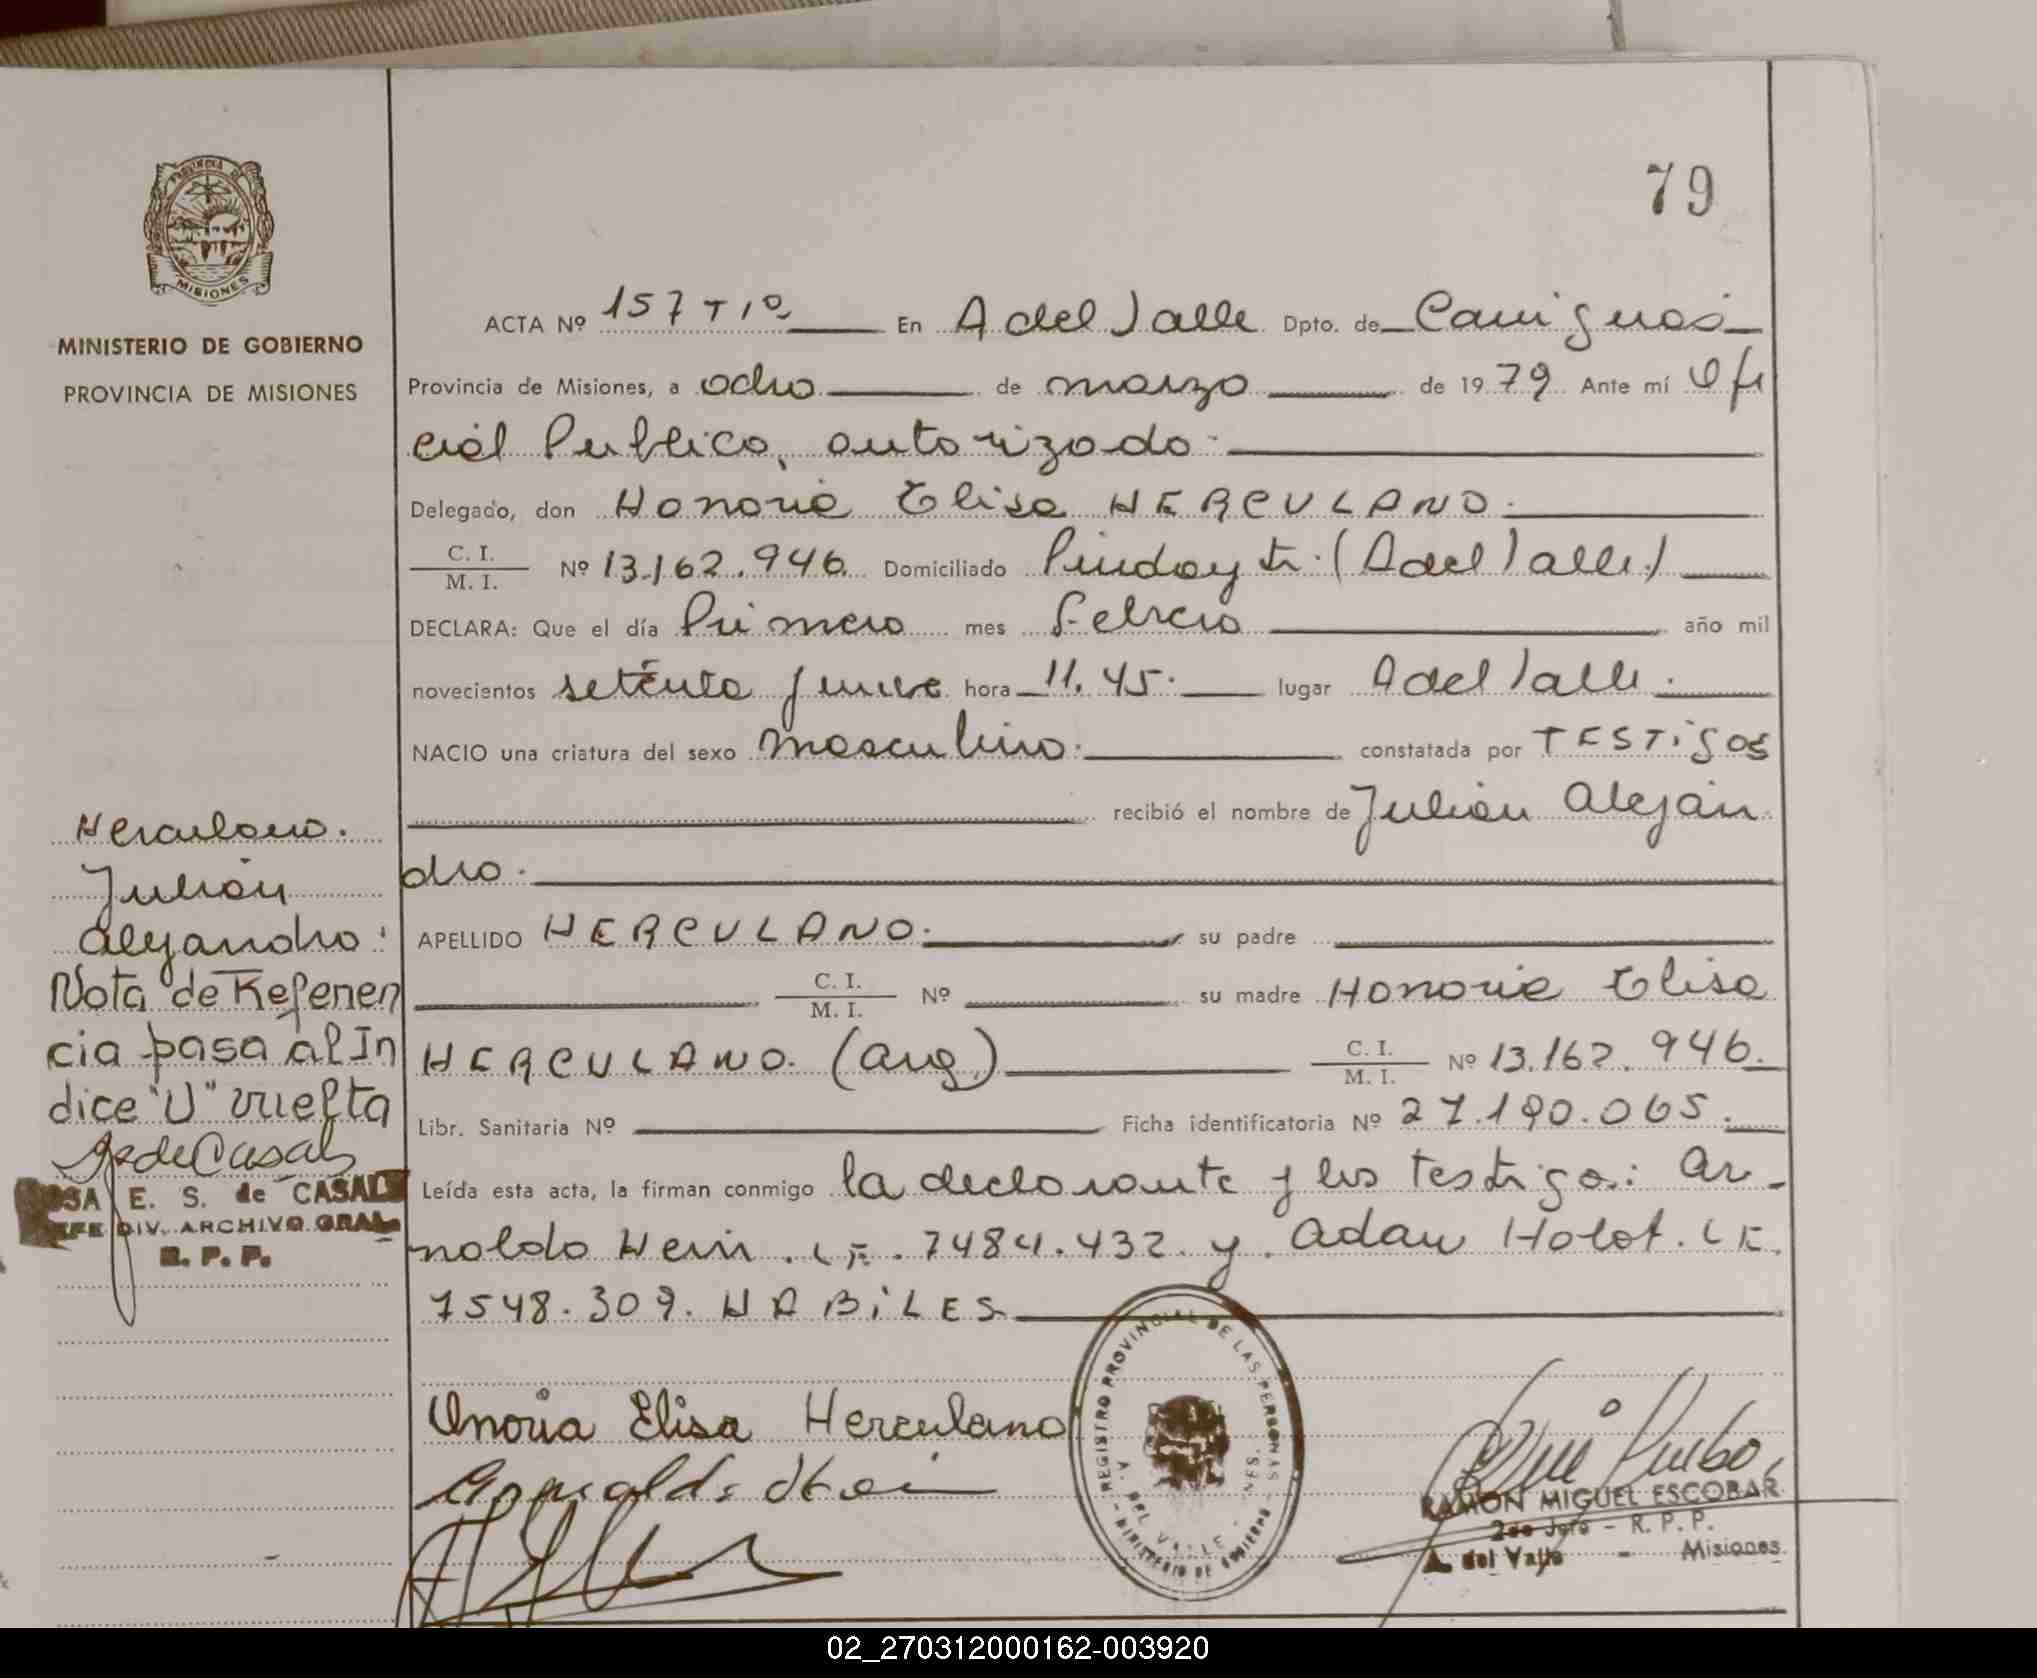 79
PROVINCIA DE
MISIONES
MINISTERIO DE GOBIERNO
PROVINCIA DE MISIONES
ACTA Nº 157 Tº 1º En A del Valle Dpto. de Cainguás
Provincia de Misiones, a ocho de marzo de 1979 Ante mí Ofi
cial Publico, autorizado.
Delegado, don Honoria Elisa HERCULANO.
C. I.
M. I. Nº 13.162.946. Domiciliado Pindayti. (A del Valle.)
DECLARA: Que el día Primero mes Febrero año mil
novecientos setenta y nueve hora 11.45. lugar A del Valle.
NACIO una criatura del sexo masculino. constatada por TESTigos
recibió el nombre de Julián Alejan
dro.
APELLIDO HERCULANO. su padre
C. I.
M. I. Nº su madre Honoria Elisa
HERCULANO. (Arg.) C. I.
M. I. Nº 13.162.946.
Libr. Sanitaria Nº Ficha identificatoria Nº 27.190.065.
Leída esta acta, la firman conmigo la declarante y los testigos: Ar
noldo Hein. LE. 7484.432. y. Adan Holot. LE.
7548.309. HABiLES
Herculano.
Julián
Alejandro:
Nota de Referen
cia pasa al In
dice "U" vuelta
E. S. de CASALS
JEFE DIV. ARCHIVO GRAL.
R. P. P.
Onoria Elisa Herculano
REGISTRO PROVINCIAL DE LAS PERSONAS
A. DEL VALLE
MINISTERIO DE GOBIERNO
RAMON MIGUEL ESCOBAR
2do Jefe - R. P. P.
A. del Valle - Misiones
02_270312000162-003920